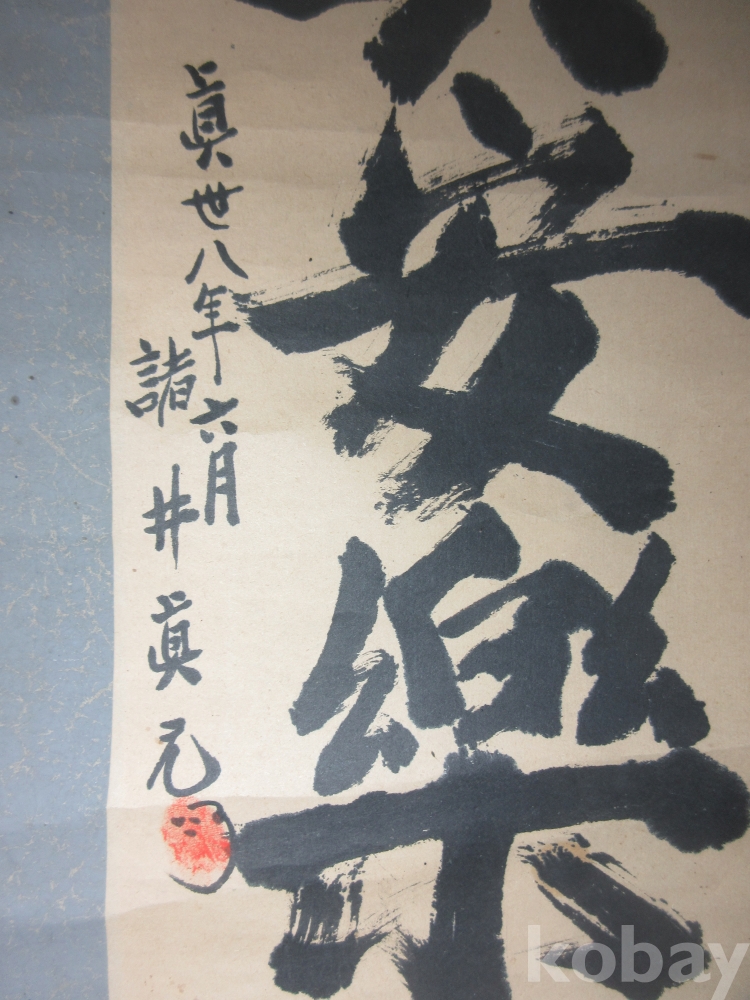 安樂
眞卋八年六月
諸井眞元
kobay